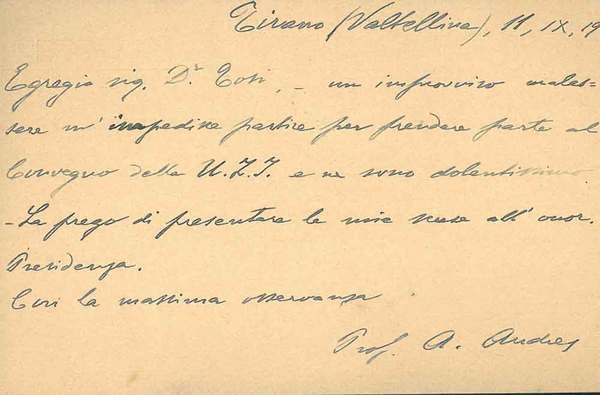 Tirano (Valtellina), 11, IX, 19
Egregio sig. Dr. Tosi, - un improvviso males-
sere m' impedisce partire per prendere parte al
Convegno della U.Z.I. e ne sono dolentissimo
- La prego di presentare le mie scuse all' onor.
Presidenza.
Con la massima osservanza
Prof. A. Andres